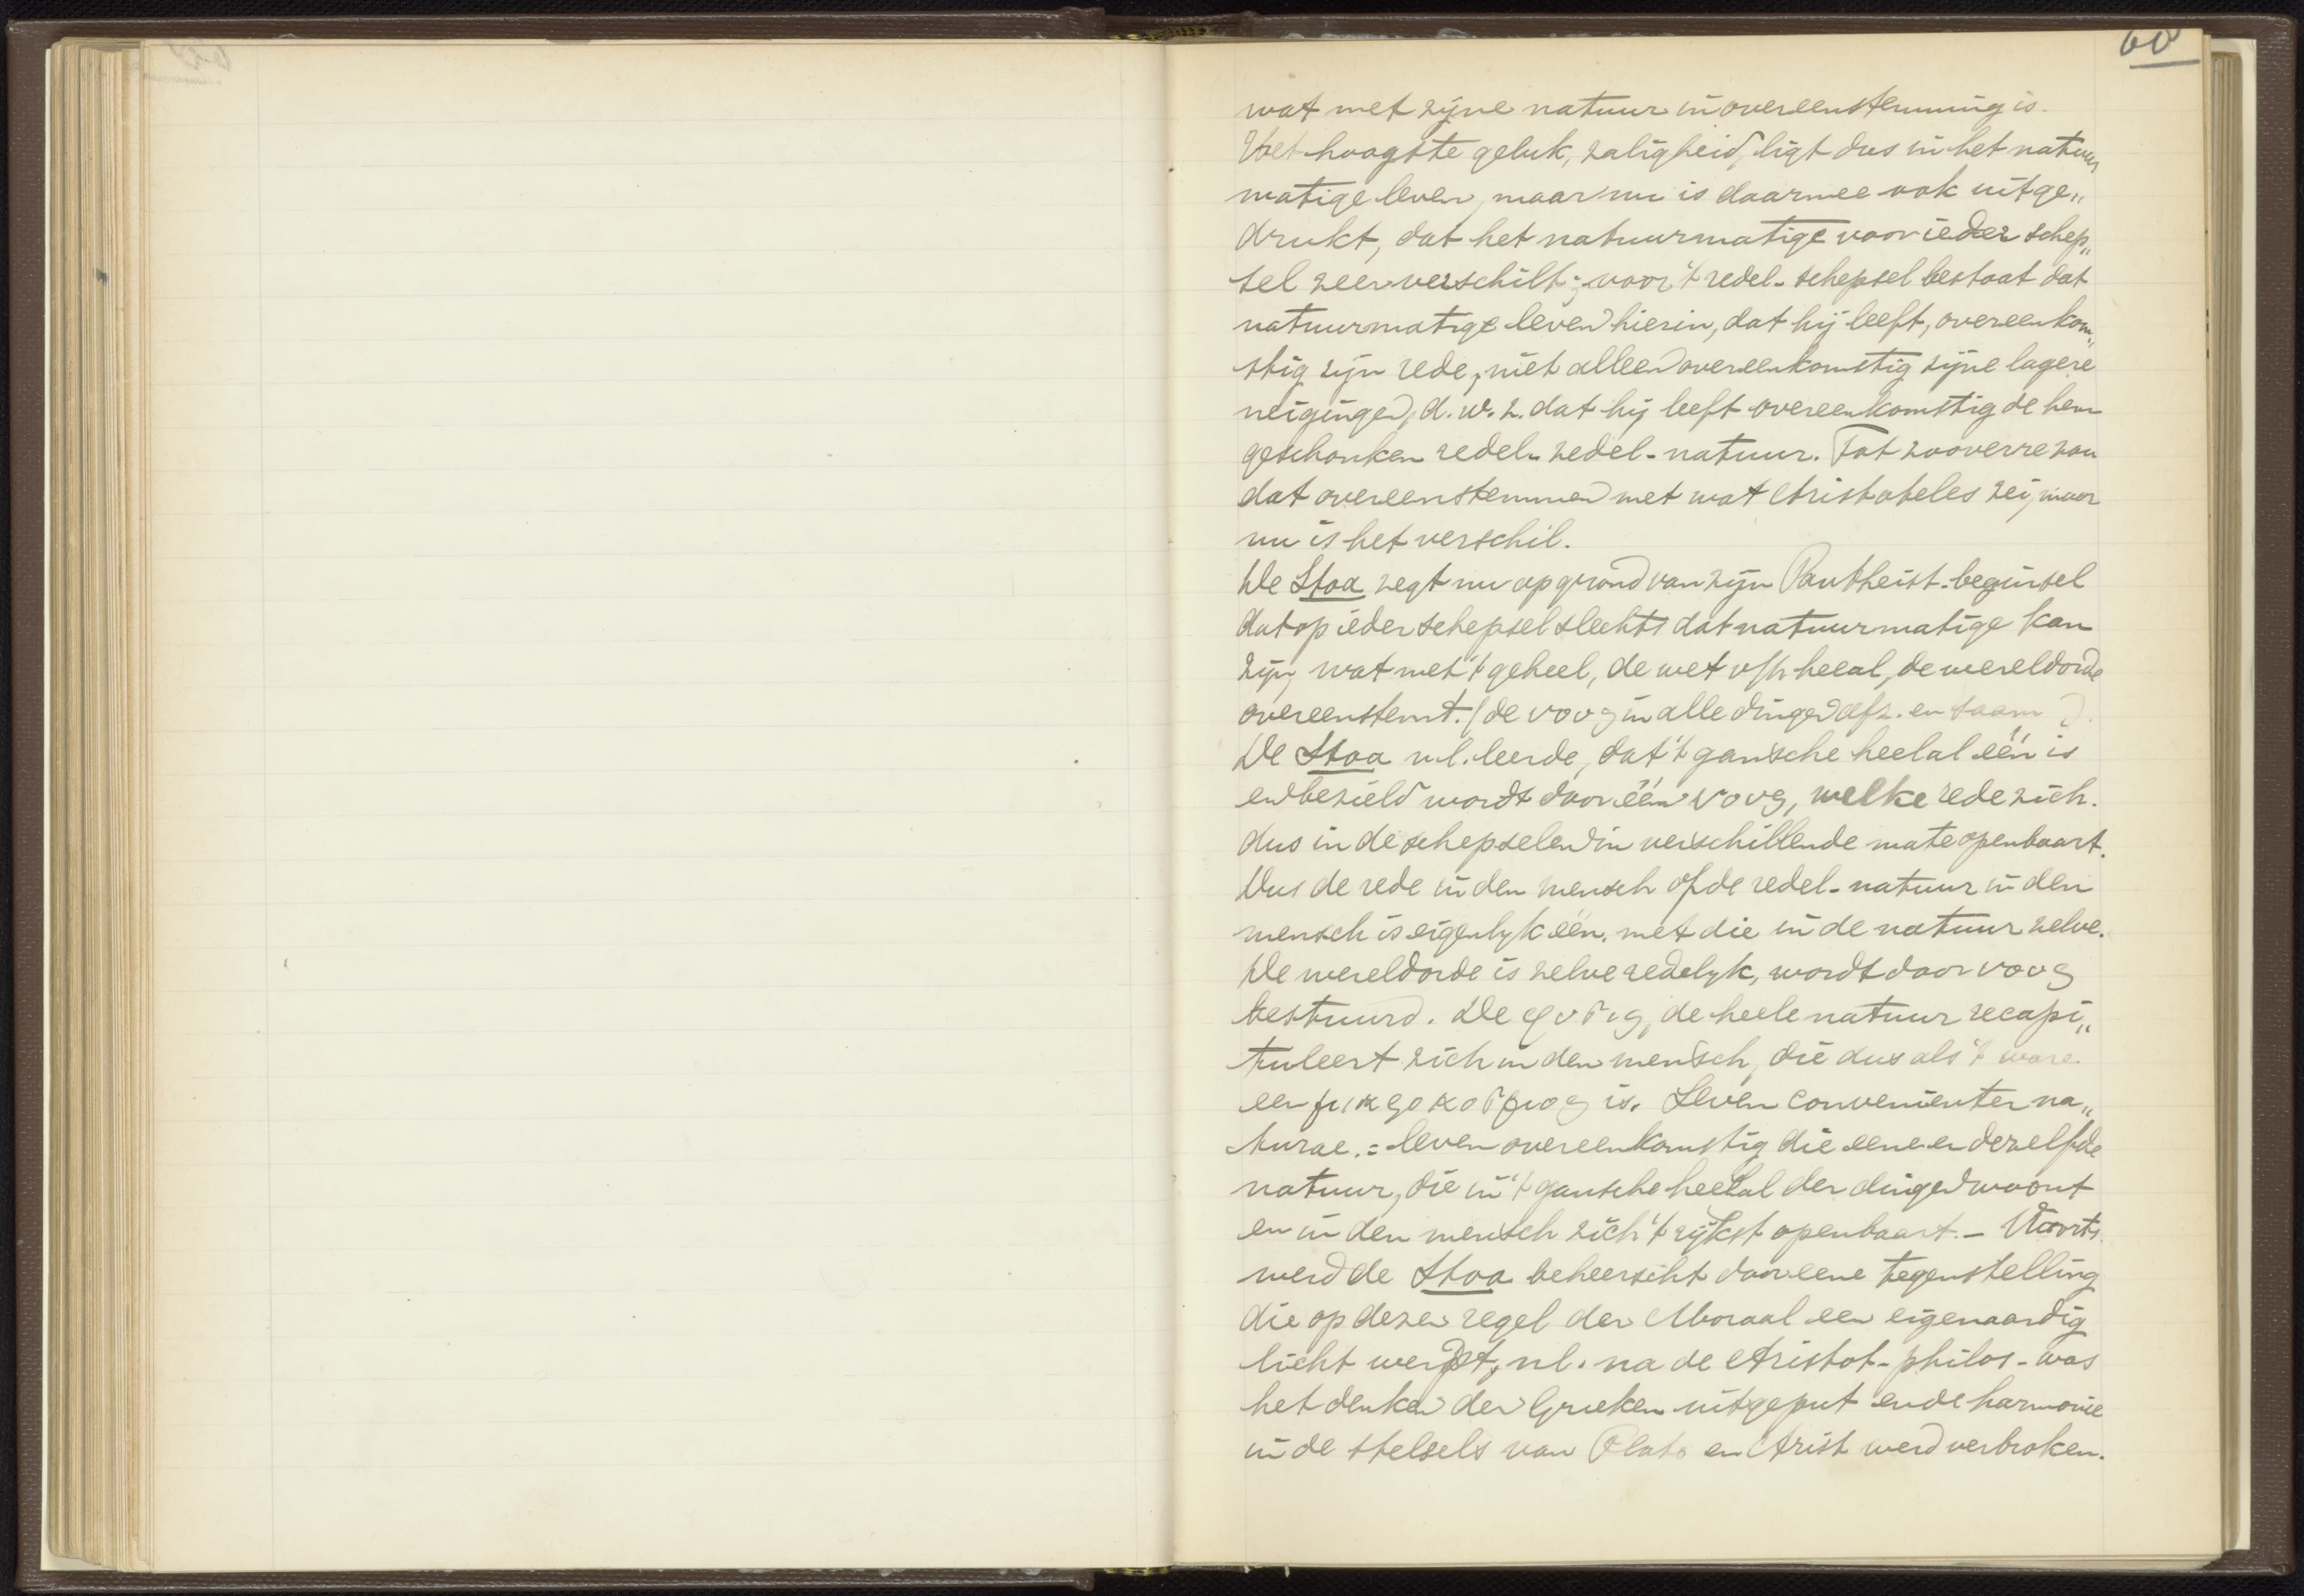 60
wat met zijne natuur in overeenstemming is.
Het hoogste geluk, zaligheid, ligt dus in het natuur
matige leven, maar nu is daarmee ook uitge„
drukt, dat het natuurmatige voor ieder schep„
sel zeer verschilt; voor 't redel. schepsel bestaat dat
natuurmatige leven hierin, dat hij leeft, overeenkom„
stig zijn rede, niet alleen overeenkomstig zijne lagere
neigingen, d.w.z. dat hij leeft overeenkomstig de hem
geschonken redel. zedel. natuur. Tot zooverre zou
dat overeenstemmen met wat Aristoteles zei, maar
nu is het verschil.
De Stoa zegt nu op grond van zijn Pantheist. beginsel
dat op ieder schepsel slechts dat natuurmatige kan
zijn, wat met 't geheel, de wet v/h heeal, de wereldorde
overeenstemt. (de νους in alle dingen afz. en saam ).
De Stoa n.l. leerde, dat 't gansche heelal één is
en bezield wordt door één νους, welke rede zich
dus in de schepselen in verschillende mate openbaart.
Dus de rede in den mensch of de redel. natuur in den
mensch is eigenlyk één met die in de natuur zelve.
De wereldorde is zelve redelyk, wordt door νους
bestuurd. De φυσις, de heele natuur recapi„
tuleert zich in den mensch, die dus als 't ware
een μικροκοσμος is. Leven convenienter na„
turae. = leven overeenkomstig die eene en dezelfde
natuur, die in 't gansche heelal der dingen woont
en in den mensch zich 't rijkst openbaart. – Voorts
werd de Stoa beheerscht door eene tegenstelling
die op dezen regel der Moraal een eigenaardig
licht werpt, nl. na de Aristot. philos. was
het denken der Grieken uitgeput en de harmonie
in de stelsels van Plato en Arist werd verbroken.